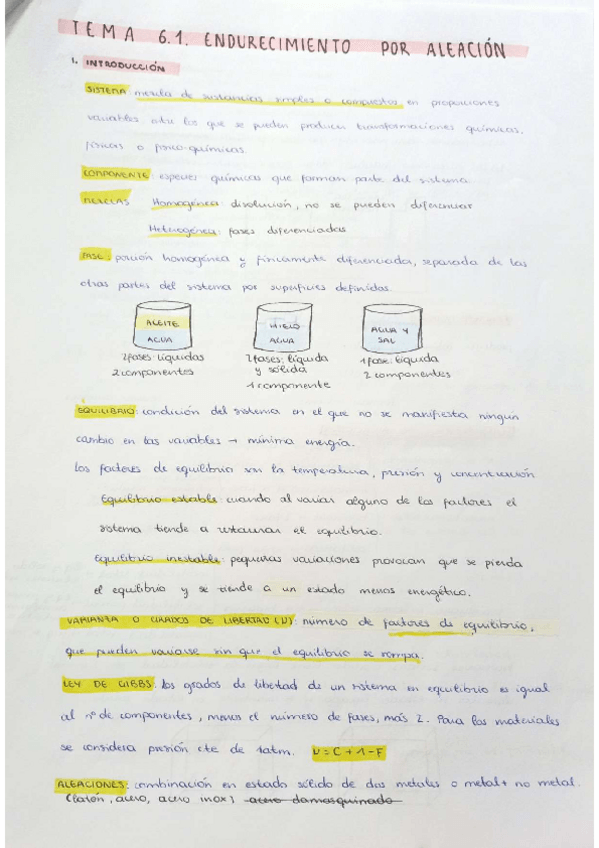 TEMA 6.1. ENDURECIMIENTO POR ALEACIÓN
1. INTRODUCCIÓN
SISTEMA: mezcla de sustancias simples o compuestas en proporciones
variables entre los que se pueden producir transformaciones químicas,
físicas o físico-químicas.
COMPONENTE: especies químicas que forman parte del sistema
MEZCLAS Homogénea: disolución, no se pueden diferenciar
Heterogénea: fases diferenciadas
FASE: porción homogénea y físicamente diferenciador, separada de las
otras partes del sistema por superficies definidas.
ACEITE HIELO AGUA Y
AGUA AGUA SAL
2 fases líquidas 2 fases: líquida 1 fase: líquida
2 componentes y sólida 2 componentes
1 componente
EQUILIBRIO: condición del sistema en el que no se manifiesta ningún
cambio en las variables → mínima energía.
Los factores de equilibrio son la temperatura, presión y concentración
Equilibrio estable: cuando al variar alguno de los factores el
sistema tiende a restaurar el equilibrio.
Equilibrio inestable: pequeñas variaciones provocan que se pierda
el equilibrio y se tiende a un estado menos energético.
VARIANZA O GRADOS DE LIBERTAD (ν): número de factores de equilibrio,
que pueden variarse sin que el equilibrio se rompa.
LEY DE GIBBS: los grados de libertad de un sistema en equilibrio es igual
al nº de componentes, menos el número de fases, más 2. Para los materiales
se considera presión cte de 1atm. ν = C + 1 - F
ALEACIONES: combinación en estado sólido de dos metales o metal + no metal.
(latón, acero, acero inox) acero damasquinado